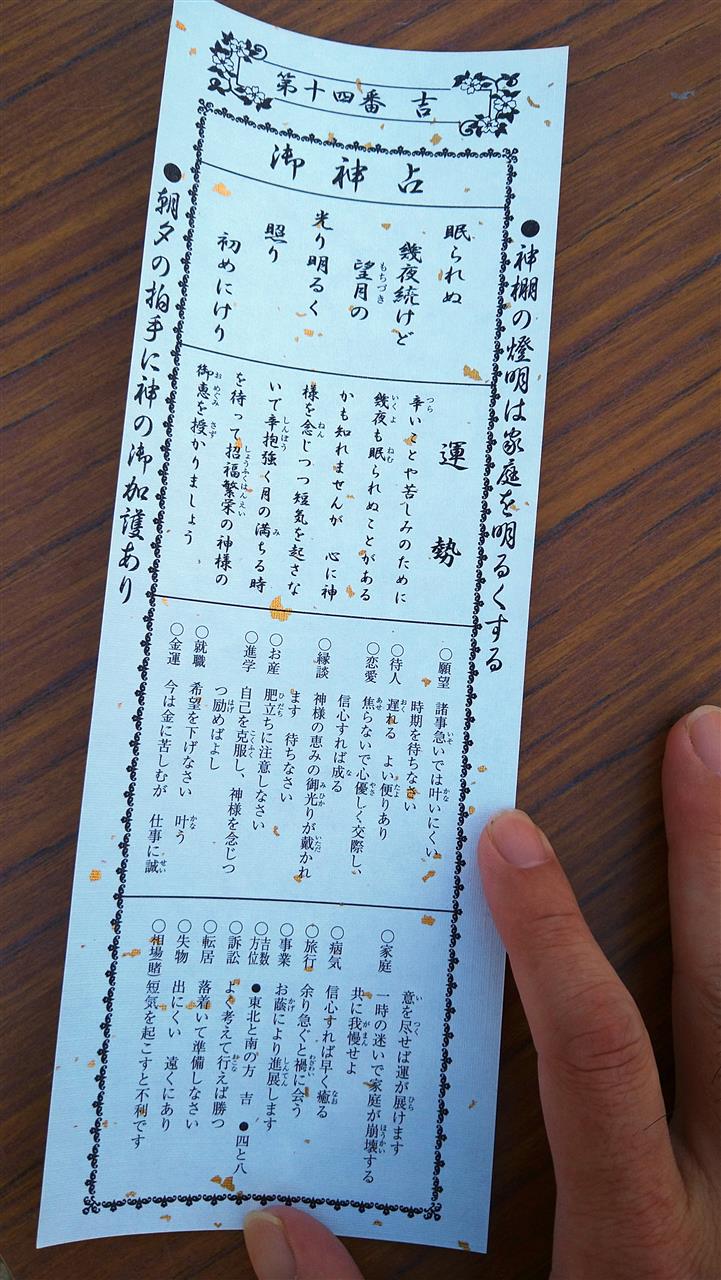 第十四番 吉
御神占
●神棚の燈明は家庭を明るくする
眠られぬ
幾夜続けど
望月の
もちづき
光り明るく
照り
初めにけり
運勢
辛いことや苦しみのために
つら
幾夜も眠られぬことがある
いくよ ねむ
かも知れませんが 心に神
様を念じつつ短気を起さな
ねん
いで辛抱強く月の満ちる時
しんぼう み
を待って招福繁栄の神様の
しょうふくはんえい
御恵を授かりましょう
おめぐみ さず
○願望 諸事急いでは叶いにくい
いそ かな
時期を待ちなさい
○待人 遅れる よい便りあり
おく たよ
○恋愛 焦らないで心優しく交際し、
あせ やさ
信心すれば成る
な
○縁談 神様の恵みの御光りが戴かれ
みひか いただ
ます 待ちなさい
○お産 肥立ちに注意しなさい
ひだち
○進学 自己を克服し、神様を念じつ
こくふく
つ励めばよし
はげ
○就職 希望を下げなさい 叶う
かな
○金運 今は金に苦しむが 仕事に誠
せい
意を尽せば運が展けます
い つく ひら
○家庭 一時の迷いで家庭が崩壊する
ほうかい
共に我慢せよ
がまん
○病気 信心すれば早く癒る
なお
○旅行 余り急ぐと禍に会う
わざわい
○事業 お蔭により進展します
かげ しんてん
○吉数方位 ●東北と南の方 吉 ●四と八
○訴訟 よく考えて行えば勝つ
おこな
○転居 落着いて準備しなさい
○失物 出にくい 遠くにあり
○相場(賭) 短気を起こすと不利です
●朝夕の拍手に神の御加護あり